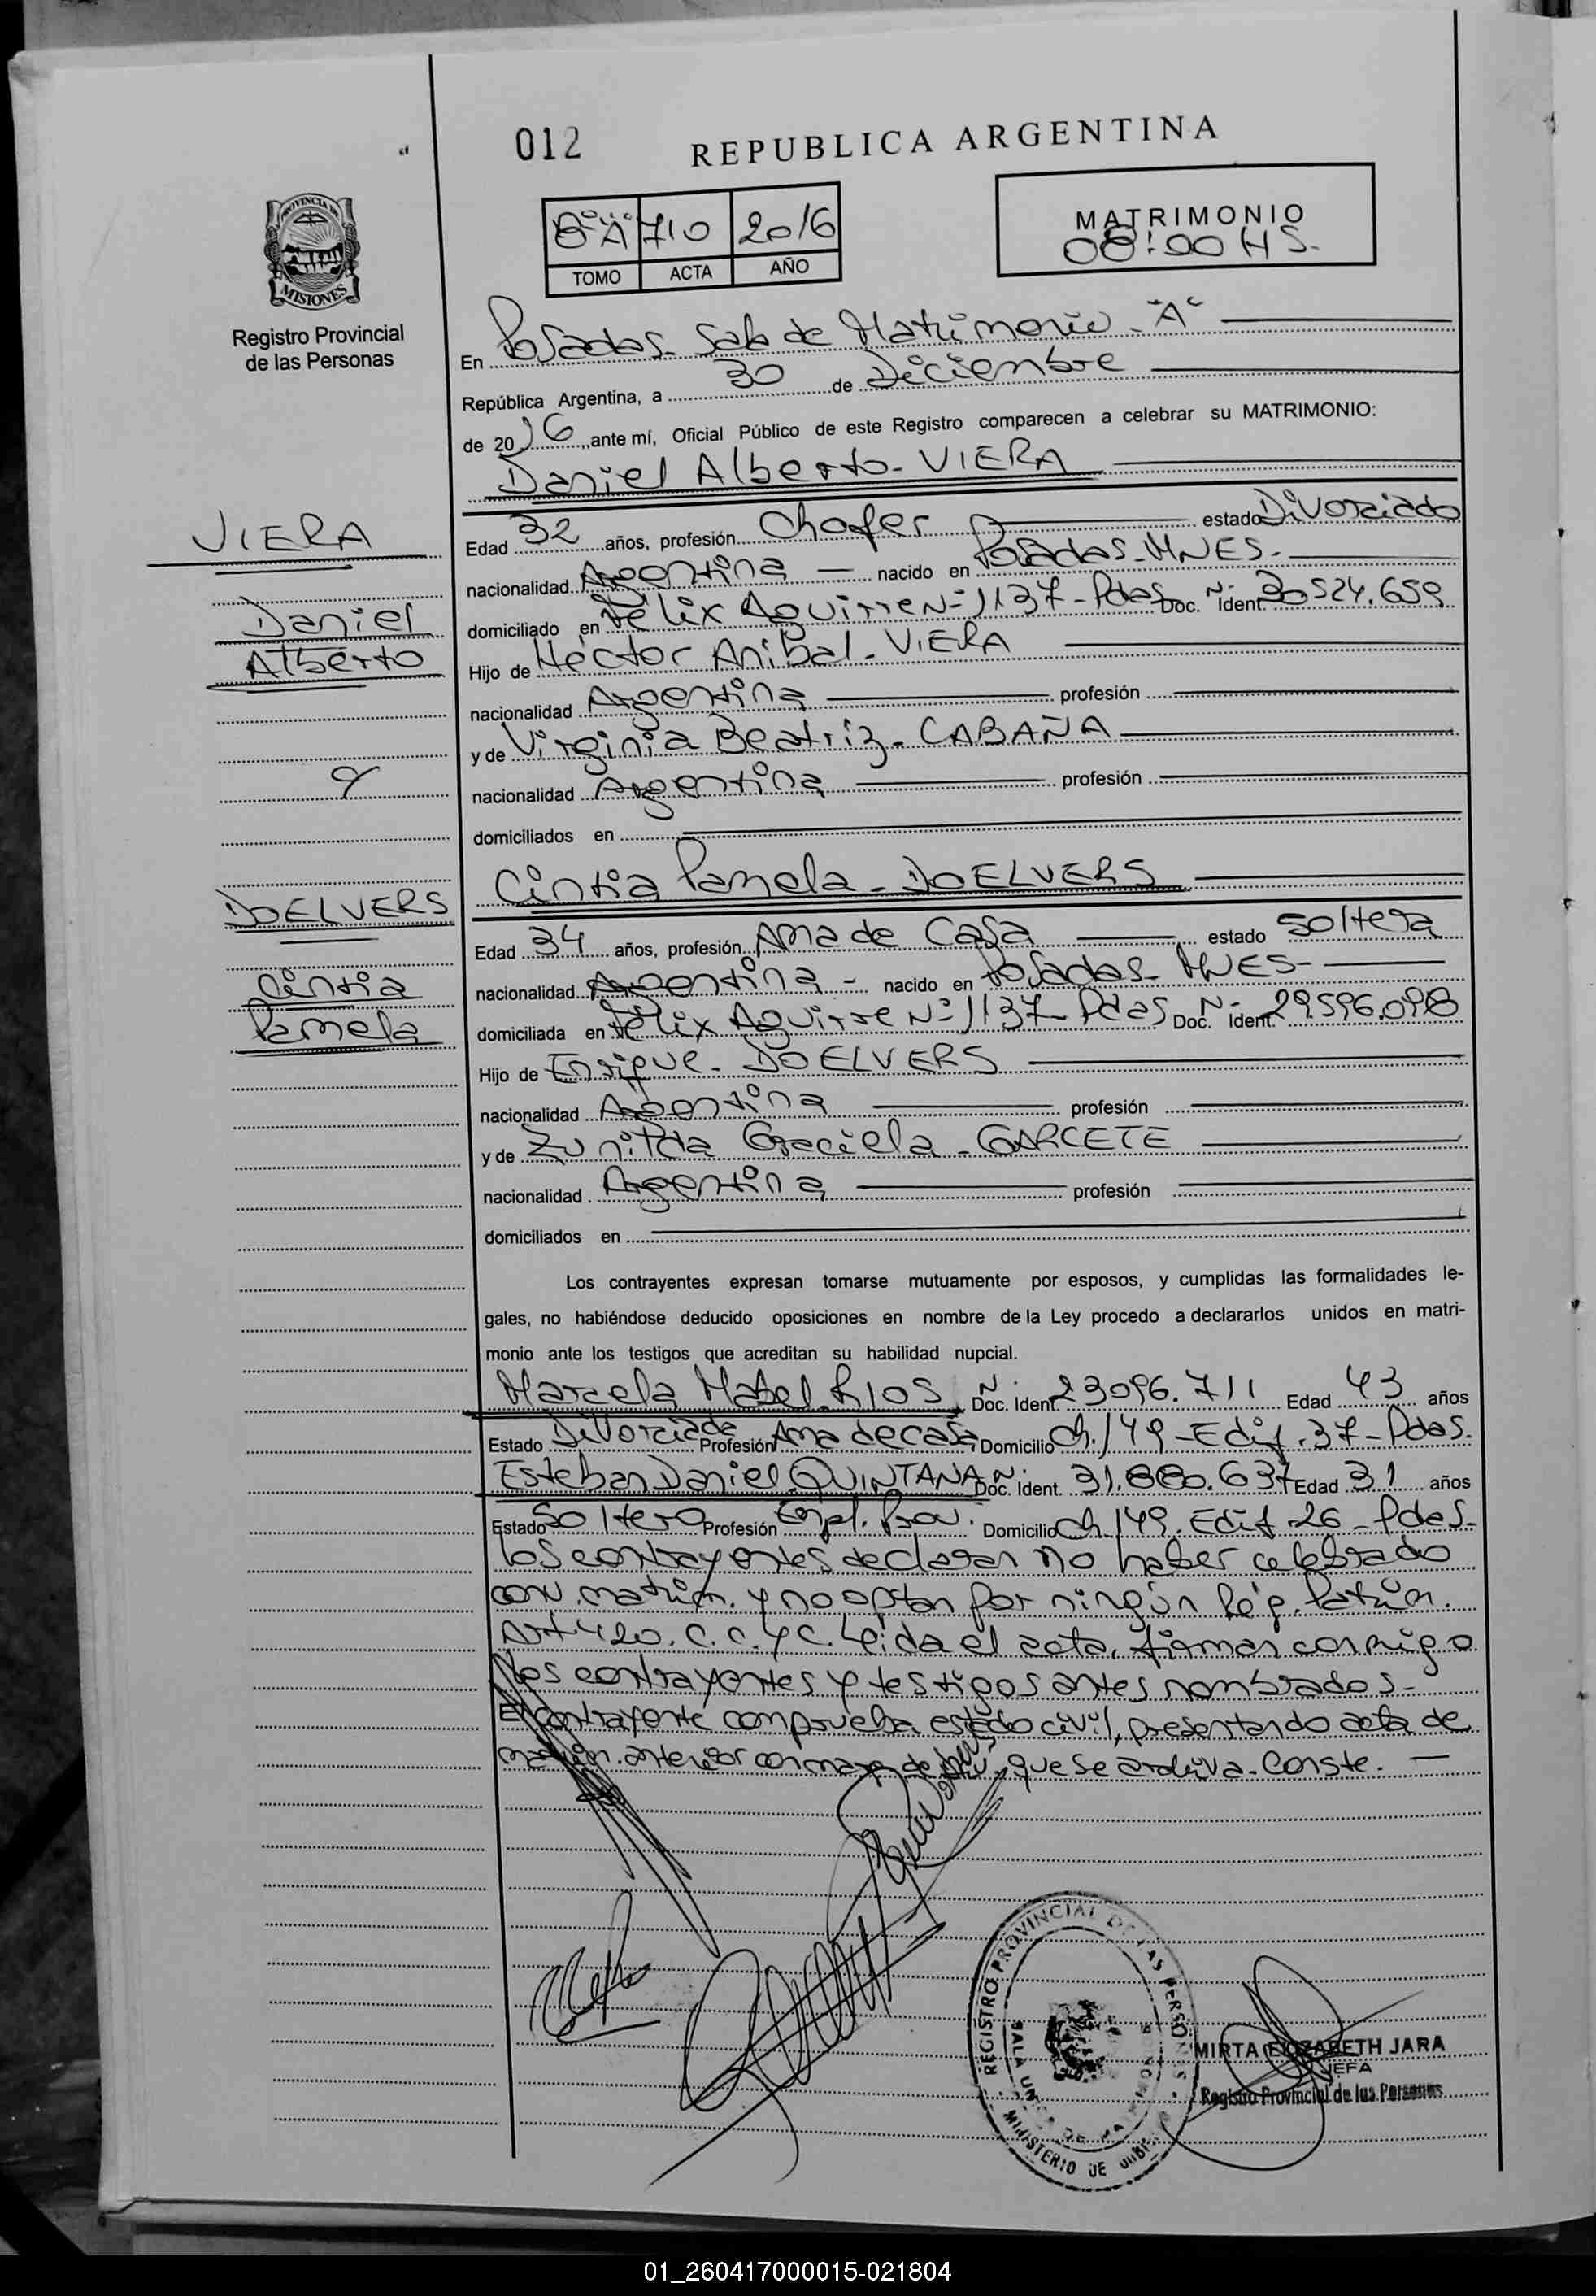 012 REPUBLICA ARGENTINA
PROVINCIA DE MISIONES
Registro Provincial
de las Personas
8º"A" 710 2016
TOMO ACTA AÑO
MATRIMONIO
08:00 HS.
En Posadas - Sala de Matrimonio - "A"
República Argentina, a 30 de Diciembre
de 2016, ante mí, Oficial Público de este Registro comparecen a celebrar su MATRIMONIO:
Daniel Alberto - VIERA
VIERA
Daniel
Alberto
Edad 32 años, profesión Chofer estado Divorciado
nacionalidad Argentina nacido en Posadas - MNES -
domiciliado en Félix Aguirre Nº 1137 - Pdas Doc. Nº Ident. 30524.659
Hijo de Héctor Anibal - VIERA
nacionalidad Argentina profesión
y de Virginia Beatriz - CABAÑA
y
nacionalidad Argentina profesión
domiciliados en
Cintia Pamela - DOELVERS
DOELVERS
Cintia
Pamela
Edad 34 años, profesión Ama de Casa estado Soltera
nacionalidad Argentina - nacido en Posadas - MNES -
domiciliada en Félix Aguirre Nº 1137 - Pdas Doc. Nº Ident. 29.596.098
Hijo de Enrique - DOELVERS
nacionalidad Argentina profesión
y de Zunilda Graciela - GARCETE
nacionalidad Argentina profesión
domiciliados en
Los contrayentes expresan tomarse mutuamente por esposos, y cumplidas las formalidades le-
gales, no habiéndose deducido oposiciones en nombre de la Ley procedo a declararlos unidos en matri-
monio ante los testigos que acreditan su habilidad nupcial.
Marcela Mabel RIOS Nº Doc. Ident. 23096.711 Edad 43 años
Estado Divorciada Profesión Ama de casa Domicilio Ch. 149 - Edif. 37 - Pdas.
Esteban Daniel QUINTANA Nº Doc. Ident. 31.880.637 Edad 31 años
Estado Soltero Profesión Empl. Prov. Domicilio Ch. 149. Edif. 26 - Pdas -
los contrayentes declaran no haber celebrado
conv. matrim. y no optan por ningún Rég. Patrim.
Art 420. C. C. y C. Leída el acta, firman conmigo
los contrayentes y testigos antes nombrados -
El contrayente comprueba estado civil, presentando acta de
matrim. anterior con marg. de Div. que se archiva. Conste. -
REGISTRO PROVINCIAL DE LAS PERSONAS
MINISTERIO DE
MIRTA ELIZABETH JARA
JEFA
Registro Provincial de las Personas
01_260417000015-021804